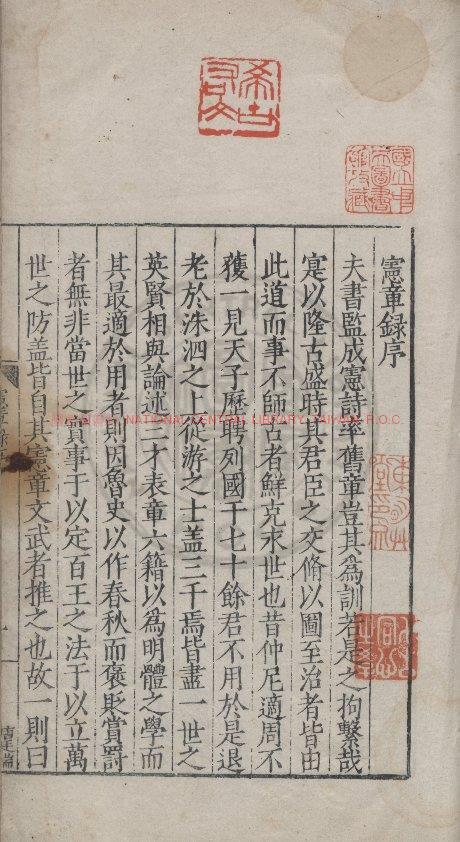 憲章録序
夫書監成憲詩率舊章豈其為訓若是之拘繫哉
寔以隆古盛時其君臣之交脩以圖至治者皆由
此道而事不師古者鮮克永世也昔仲尼適周不
獲一見天子歷聘列國干七十餘君不用於是退
老於洙泗之上從游之士盖三千焉皆盡一世之
英賢相與論述三才表章六籍以為明體之學而
其最適於用者則因魯史以作春秋而褒貶賞罰
者無非當世之實事于以定百王之法于以立萬
世之防盖皆自其憲章文武者推之也故一則曰
希古
國立中
央圖書
館收藏
NATIONAL CENTRAL LIBRARY, TAIWAN, R.O.C.